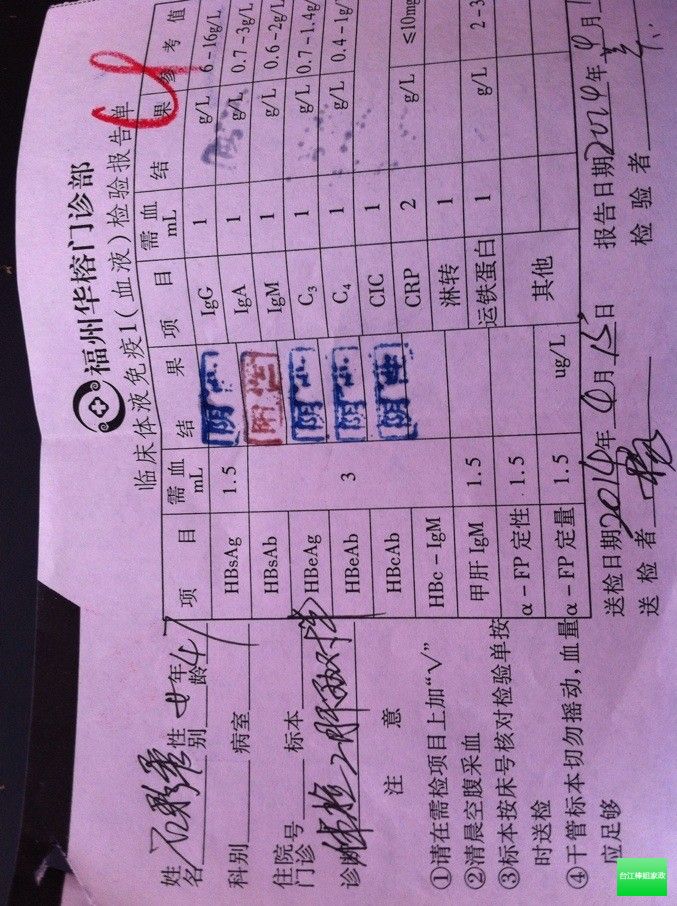 福州华榕门诊部
临床体液免疫1(血液)检验报告单
姓名 性别 女 年龄 47
科别 病室
住院门诊号 标本
诊断
注 意
①请在需检项目上加“√”
②清晨空腹采血
③标本按床号核对检验单按
时送检
④干管标本切勿摇动,血量
应足够
项 目 需血mL 结 果 项 目 需血mL 结 果 参 考 值
HBsAg 1.5 阴性 IgG 1 g/L 6-16g/L
HBsAb 3 阳性 IgA 1 g/L 0.7-3g/L
HBeAg 阴性 IgM 1 g/L 0.6-2g/L
HBeAb 阴性 C₃ 1 g/L 0.7-1.4g/
HBcAb 阴性 C₄ 1 g/L 0.4-1g/
HBc-IgM CIC 1
甲肝 IgM 1.5 CRP 2 g/L ≤10mg
α-FP 定性 1.5 淋转 1
α-FP 定量 1.5 ug/L 运铁蛋白 1 g/L 2-3
其他
送检日期 2014年4月15日 报告日期 2014年4月
送检者 检验者
台江棒姐家政